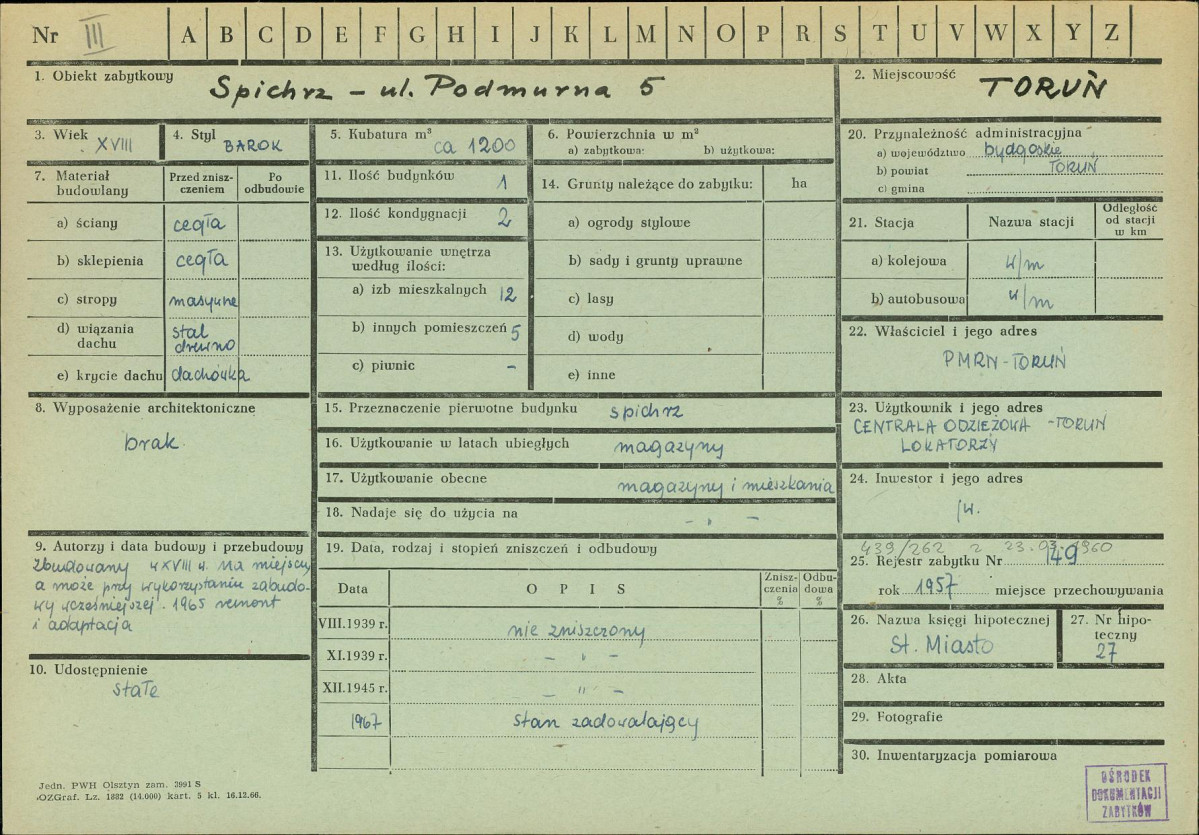 Nr III A B C D E F G H I J K L M N O P R S T U V W X Y Z
1. Obiekt zabytkowy Spichrz – ul. Podmurna 5
2. Miejscowość TORUŃ
3. Wiek XVIII
4. Styl BAROK
5. Kubatura m³ ca 1200
6. Powierzchnia w m²
a) zabytkowa: b) użytkowa:
7. Materiał budowlany
Przed znisz-
czeniem
Po
odbudowie
a) ściany cegła
b) sklepienia cegła
c) stropy masywne
d) wiązania
dachu
stal
drewno
e) krycie dachu dachówka
8. Wyposażenie architektoniczne
brak
9. Autorzy i data budowy i przebudowy
Zbudowany w XVIII w. na miejscu
a może przy wykorzystaniu zabudo-
wy wcześniejszej. 1965 remont
i adaptacja
10. Udostępnienie
stałe
11. Ilość budynków 1
12. Ilość kondygnacji 2
13. Użytkowanie wnętrza
według ilości:
a) izb mieszkalnych 12
b) innych pomieszczeń 5
c) piwnic –
14. Grunty należące do zabytku: ha
a) ogrody stylowe
b) sady i grunty uprawne
c) lasy
d) wody
e) inne
15. Przeznaczenie pierwotne budynku spichrz
16. Użytkowanie w latach ubiegłych magazyny
17. Użytkowanie obecne magazyny i mieszkania
18. Nadaje się do użycia na – „ –
19. Data, rodzaj i stopień zniszczeń i odbudowy
Data O P I S
Znisz-
czenia
%
Odbu-
dowa
%
VIII.1939 r. nie zniszczony
XI.1939 r. – „ –
XII.1945 r. – „ –
1967 stan zadowalający
20. Przynależność administracyjna
a) województwo bydgoskie
b) powiat TORUŃ
c) gmina
21. Stacja Nazwa stacji
Odległość
od stacji
w km
a) kolejowa w/m
b) autobusowa w/m
22. Właściciel i jego adres
PMRN – TORUŃ
23. Użytkownik i jego adres
CENTRALA ODZIEŻOWA – TORUŃ
LOKATORZY
24. Inwestor i jego adres
j.w.
439/262 z 23.03.1960
25. Rejestr zabytku Nr 149
rok 1957 miejsce przechowywania
26. Nazwa księgi hipotecznej
St. Miasto
27. Nr hipo-
teczny
27
28. Akta
29. Fotografie
30. Inwentaryzacja pomiarowa
Jedn. PWH Olsztyn zam. 3991 S
OZGraf. Lz. 1882 (14.000) kart. 5 kl. 16.12.66.
OŚRODEK
DOKUMENTACJI
ZABYTKÓW